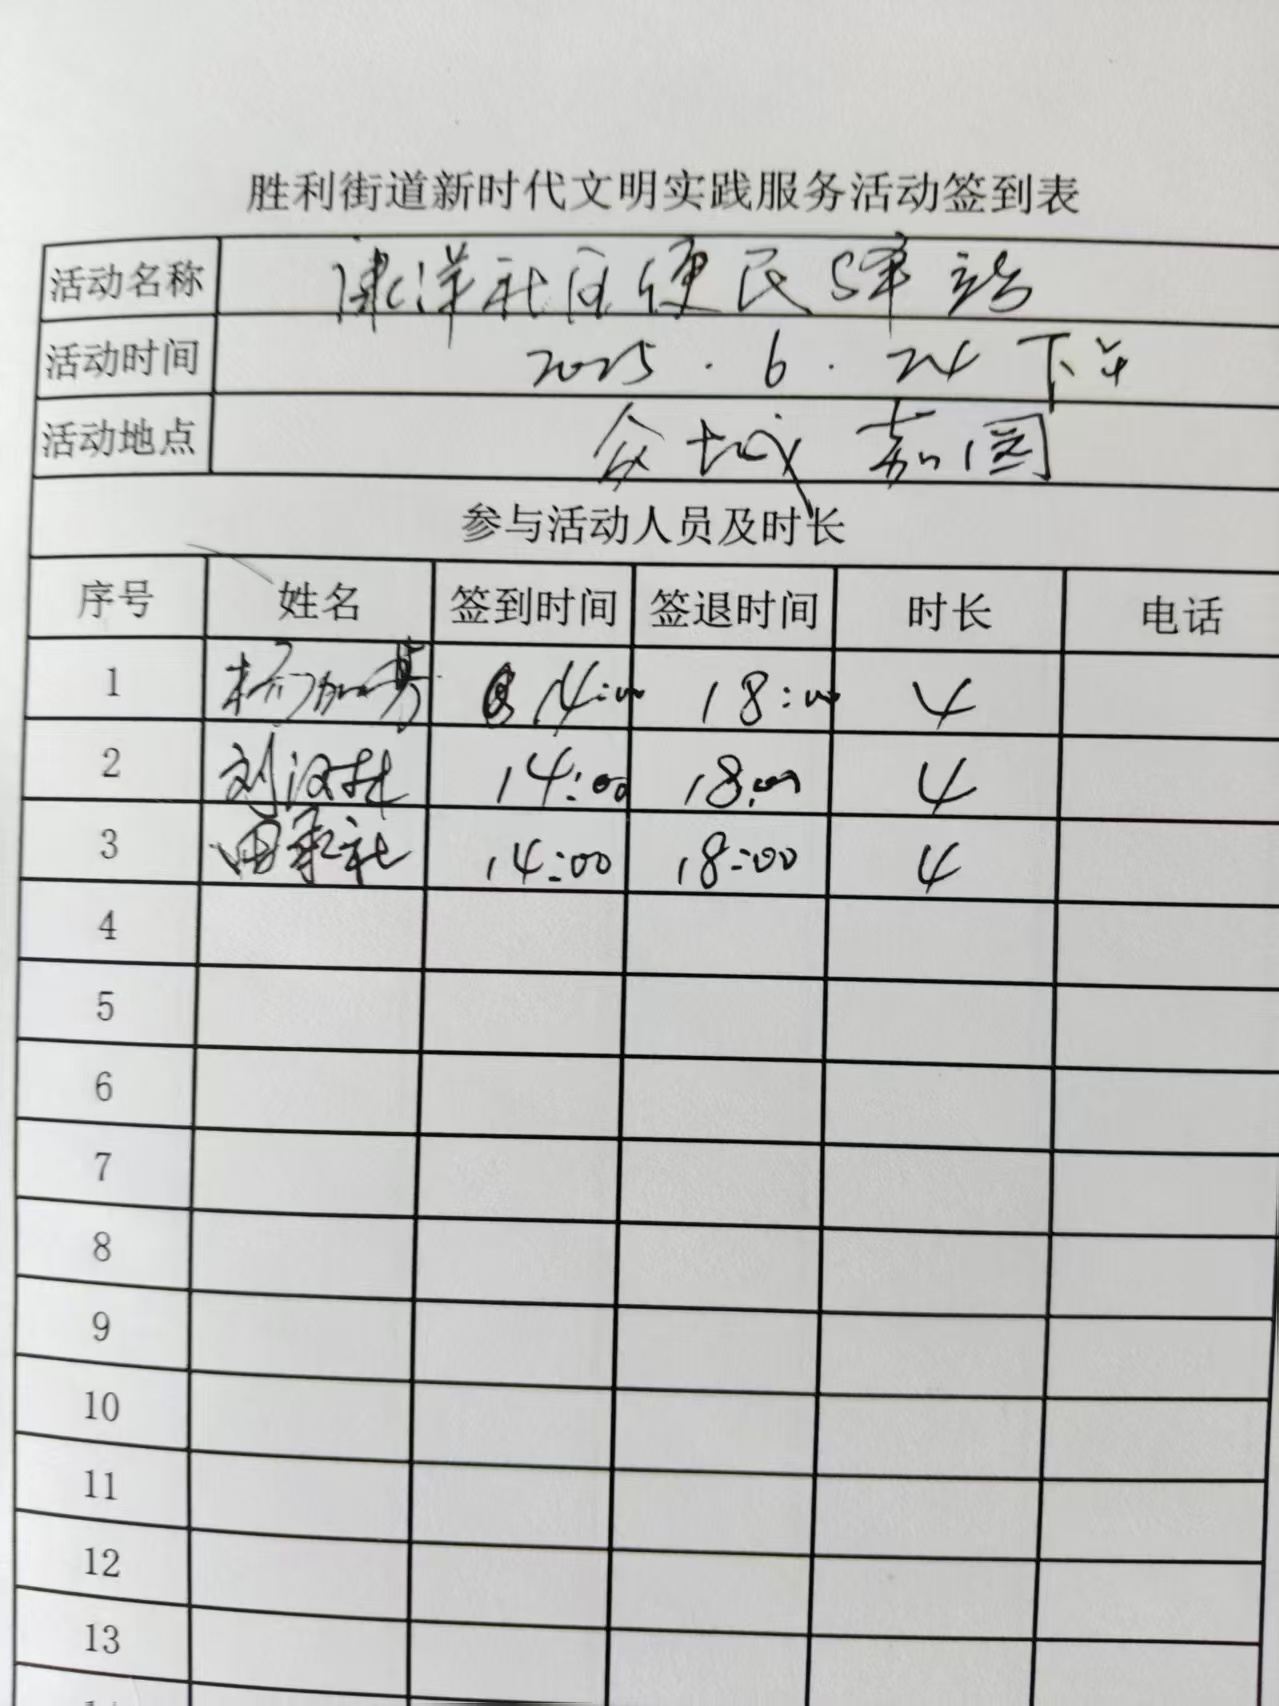 胜利街道新时代文明实践服务活动签到表
活动名称 社区便民驿站
活动时间 2025.6.24 下午
活动地点 众城嘉园
参与活动人员及时长
序号 姓名 签到时间 签退时间 时长 电话
1 杨加 14:00 18:00 4
2 刘汉 14:00 18:00 4
3 田承社 14:00 18:00 4
4
5
6
7
8
9
10
11
12
13